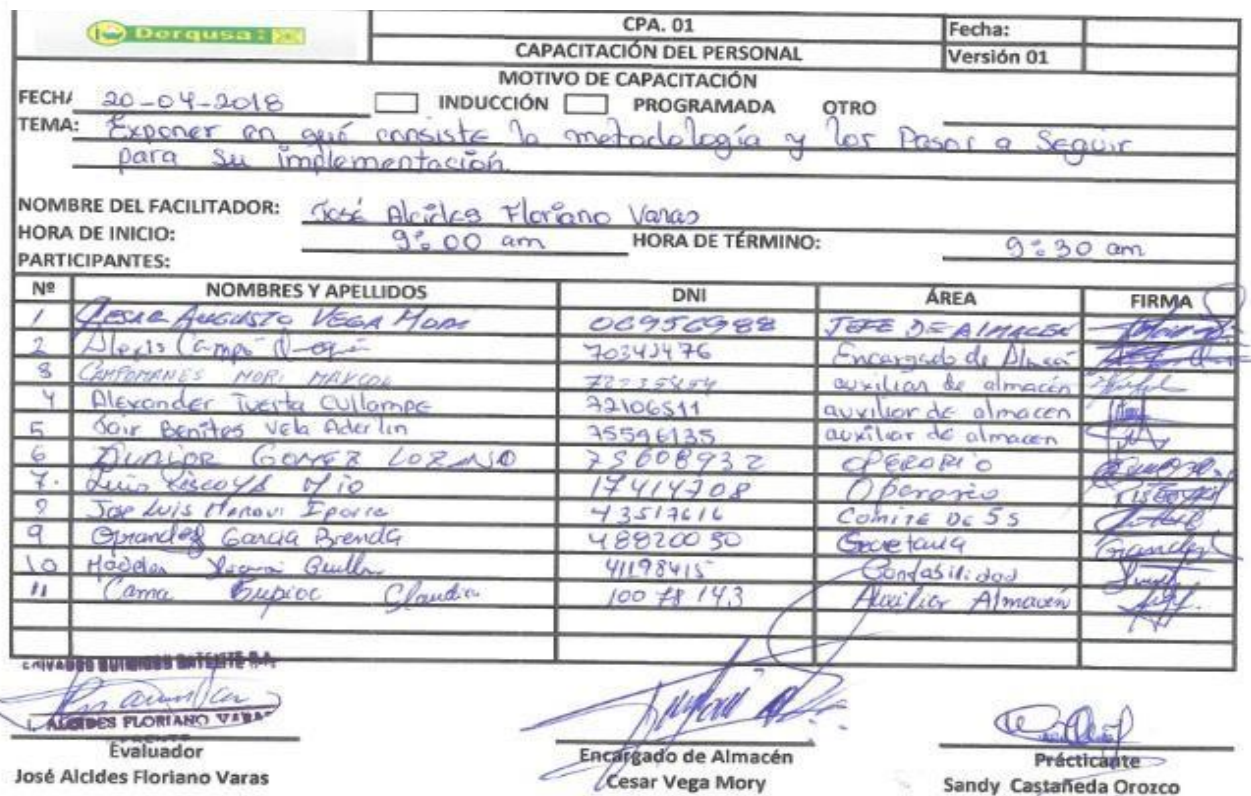 Derqusa
CPA. 01
Fecha:
CAPACITACIÓN DEL PERSONAL
Versión 01
MOTIVO DE CAPACITACIÓN
FECHA 20-04-2018 INDUCCIÓN PROGRAMADA OTRO
TEMA: Exponer en qué consiste la metodología y los Pasos a Seguir
para su implementación.
NOMBRE DEL FACILITADOR: José Alcides Floriano Varas
HORA DE INICIO: 9:00 am HORA DE TÉRMINO: 9:30 am
PARTICIPANTES:
Nº NOMBRES Y APELLIDOS DNI ÁREA FIRMA
1 Cesar Augusto Vega Mory 06956988 JEFE DE ALMACEN
2 Alexis Campo 70342476 Encargado de Almacén
3 CAMPOMANES MORI MAYCOL auxiliar de almacén
4 Alexander Tuerta Cullampe 72106511 auxiliar de almacen
5 Jair Benites Vela Aderlin 75596135 auxiliar de almacen
6 JUNIOR GOMEZ LOZANO 75608932 OPERARIO
7. Luis Mio 17414708 Operario
Jose Luis Iparra 43517616 Comite De 5S
9 Garcia Brenda 48820050 Secretaria
10 41198415 Contabilidad
11 Cama Claudia 10078143 Auxiliar Almacén
ALCIDES FLORIANO VARAS
Evaluador
José Alcides Floriano Varas
Encargado de Almacén
Cesar Vega Mory
Prácticante
Sandy Castañeda Orozco